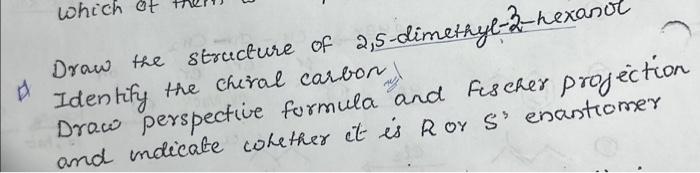 which of them
Draw the structure of 2,5-dimethyl-3-hexanol
Identify the chiral carbon
Draw perspective formula and Fischer projection
and indicate whether it is R or S' enantiomer